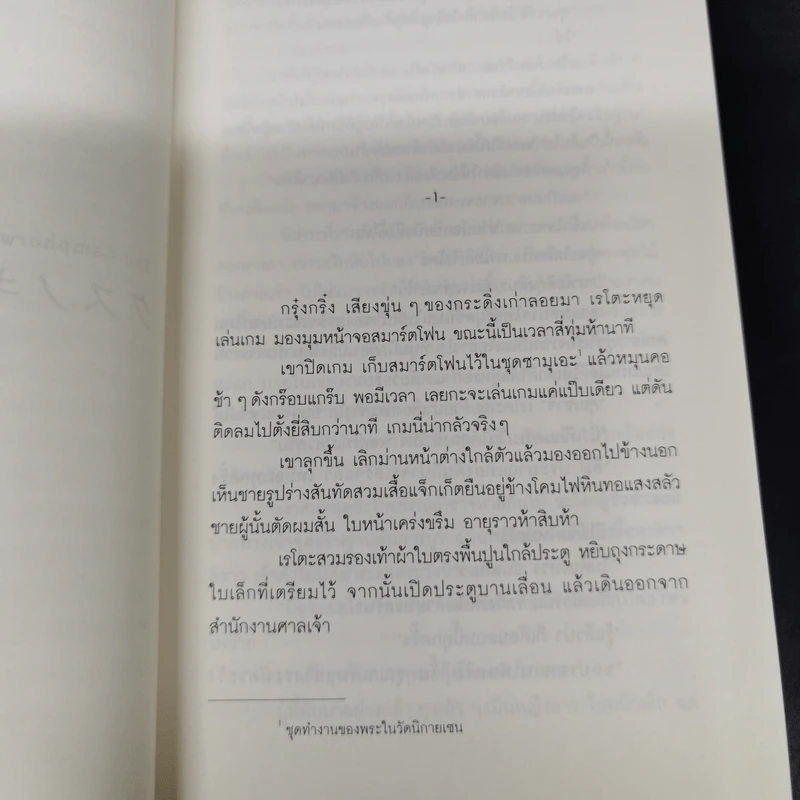 -1-
กรุ๋งกริ๋ง เสียงขุ่น ๆ ของกระดิ่งเก่าลอยมา เรโตะหยุด
เล่นเกม มองมุมหน้าจอสมาร์ตโฟน ขณะนี้เป็นเวลาสี่ทุ่มห้านาที
เขาปิดเกม เก็บสมาร์ตโฟนไว้ในชุดซามุเอะ¹ แล้วหมุนคอ
ช้า ๆ ดังกร๊อบแกร๊บ พอมีเวลา เลยกะจะเล่นเกมแค่แป๊บเดียว แต่ดัน
ติดลมไปตั้งยี่สิบกว่านาที เกมนี่น่ากลัวจริงๆ
เขาลุกขึ้น เลิกม่านหน้าต่างใกล้ตัวแล้วมองออกไปข้างนอก
เห็นชายรูปร่างสันทัดสวมเสื้อแจ็กเก็ตยืนอยู่ข้างโคมไฟหินทอแสงสลัว
ชายผู้นั้นตัดผมสั้น ใบหน้าเคร่งขรึม อายุราวห้าสิบห้า
เรโตะสวมรองเท้าผ้าใบตรงพื้นปูนใกล้ประตู หยิบถุงกระดาษ
ใบเล็กที่เตรียมไว้ จากนั้นเปิดประตูบานเลื่อน แล้วเดินออกจาก
สำนักงานศาลเจ้า
¹ ชุดทำงานของพระในวัดนิกายเซน